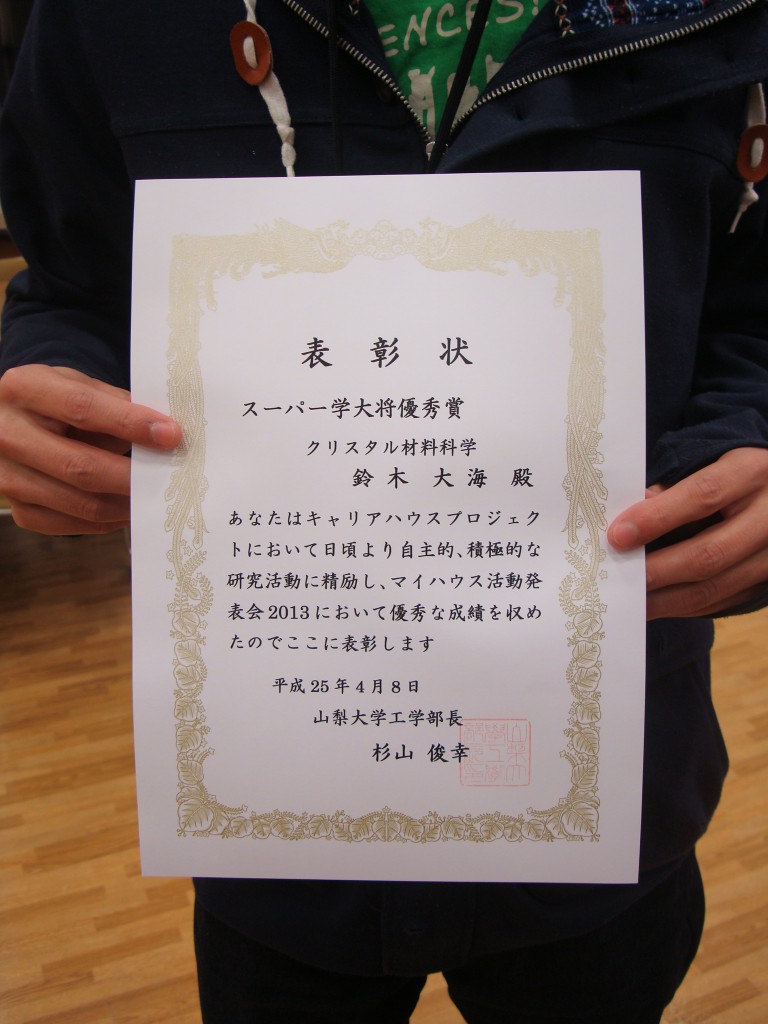 ENCES
表彰状
スーパー学大将優秀賞
クリスタル材料科学
鈴木 大海 殿
あなたはキャリアハウスプロジェク
トにおいて日頃より自主的、積極的な
研究活動に精励し、マイハウス活動発
表会2013において優秀な成績を収め
たのでここに表彰します
平成25年4月8日
山梨大学工学部長
杉山 俊幸